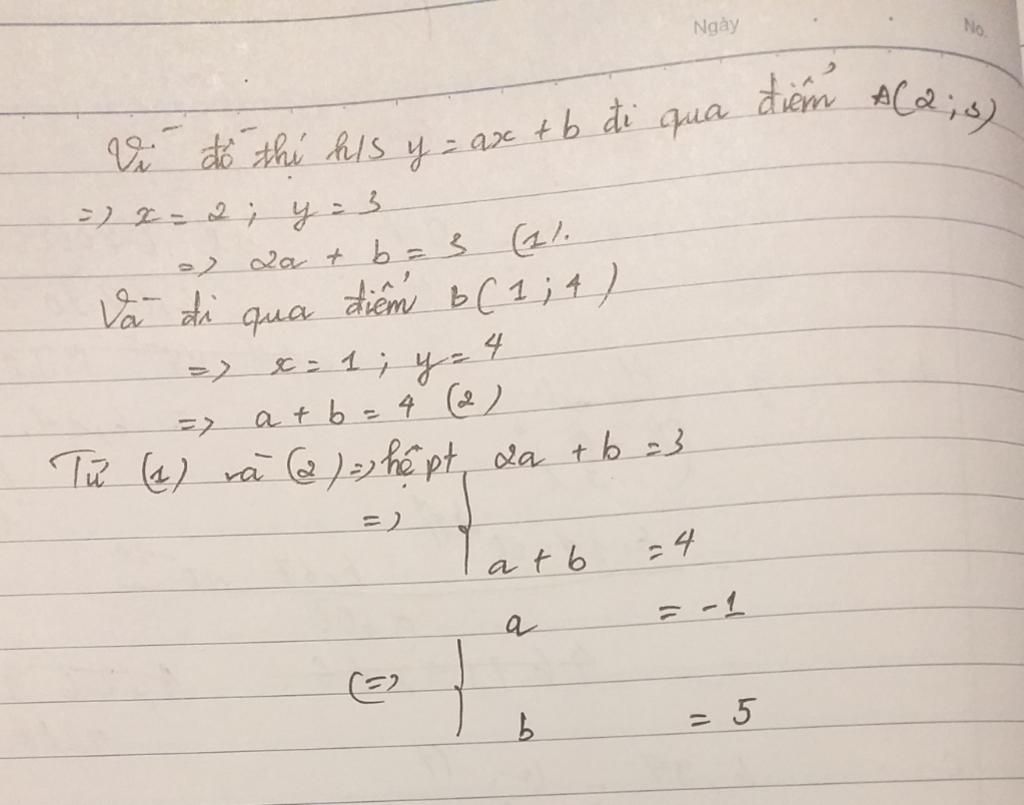 Ngày No.
Vì đồ thị h/s y = ax + b đi qua điểm A(2;3)
=> x = 2; y = 3
=> 2a + b = 3 (1).
Và đi qua điểm b(1;4)
=> x = 1; y = 4
=> a + b = 4 (2)
Từ (1) và (2) => hệ pt 2a + b = 3
=> {
a + b = 4
a = -1
<=> {
b = 5